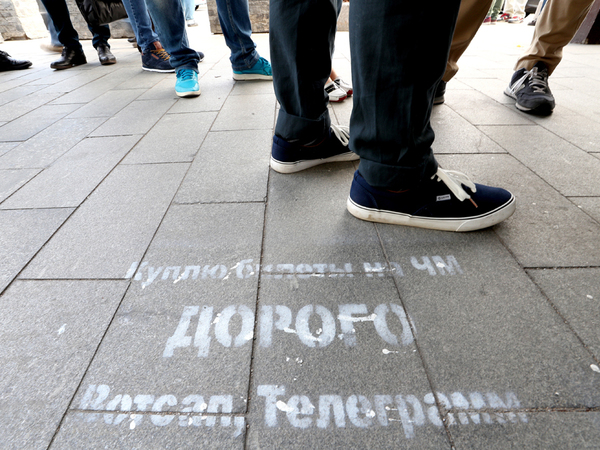 Куплю билеты на ЧМ
ДОРОГО
Вотсап, Телеграмм